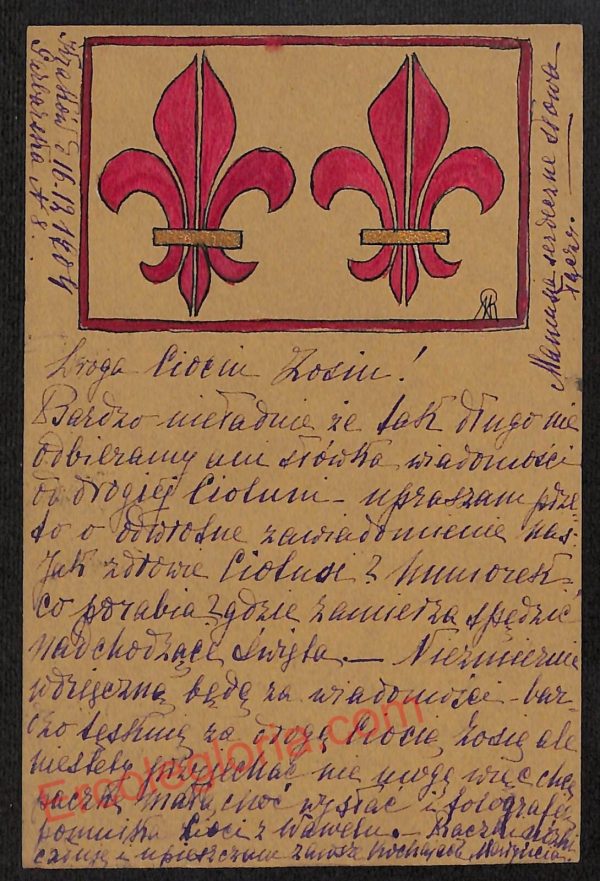 Kraków 16.12 1904
Garbarska № 8.
Mamusia serdeczne słowa
łączy.
Droga Ciociu Zosiu!
Bardzo nieładnie że tak długo nie
odbieramy ani słówka wiadomości
od drogiej Cioluni – upraszam prze-
to o odwrotne zawiadomienie nas.
Jak zdrowie Ciotusi? humorek?
co porabia? gdzie zamierza spędzić
nadchodzące święta. — Niezmiernie
wdzięczną będę za wiadomości – bar-
dzo tęsknię za drogą Ciocią Zosią ale
niestety przyjechać nie mogę więc chcę
paczkę małą choć wysłać i fotografę
pomnika Cioci z Wawelu. – Rączki
całuję i upieszczam zawsze kochająca
Ercolegloria.com